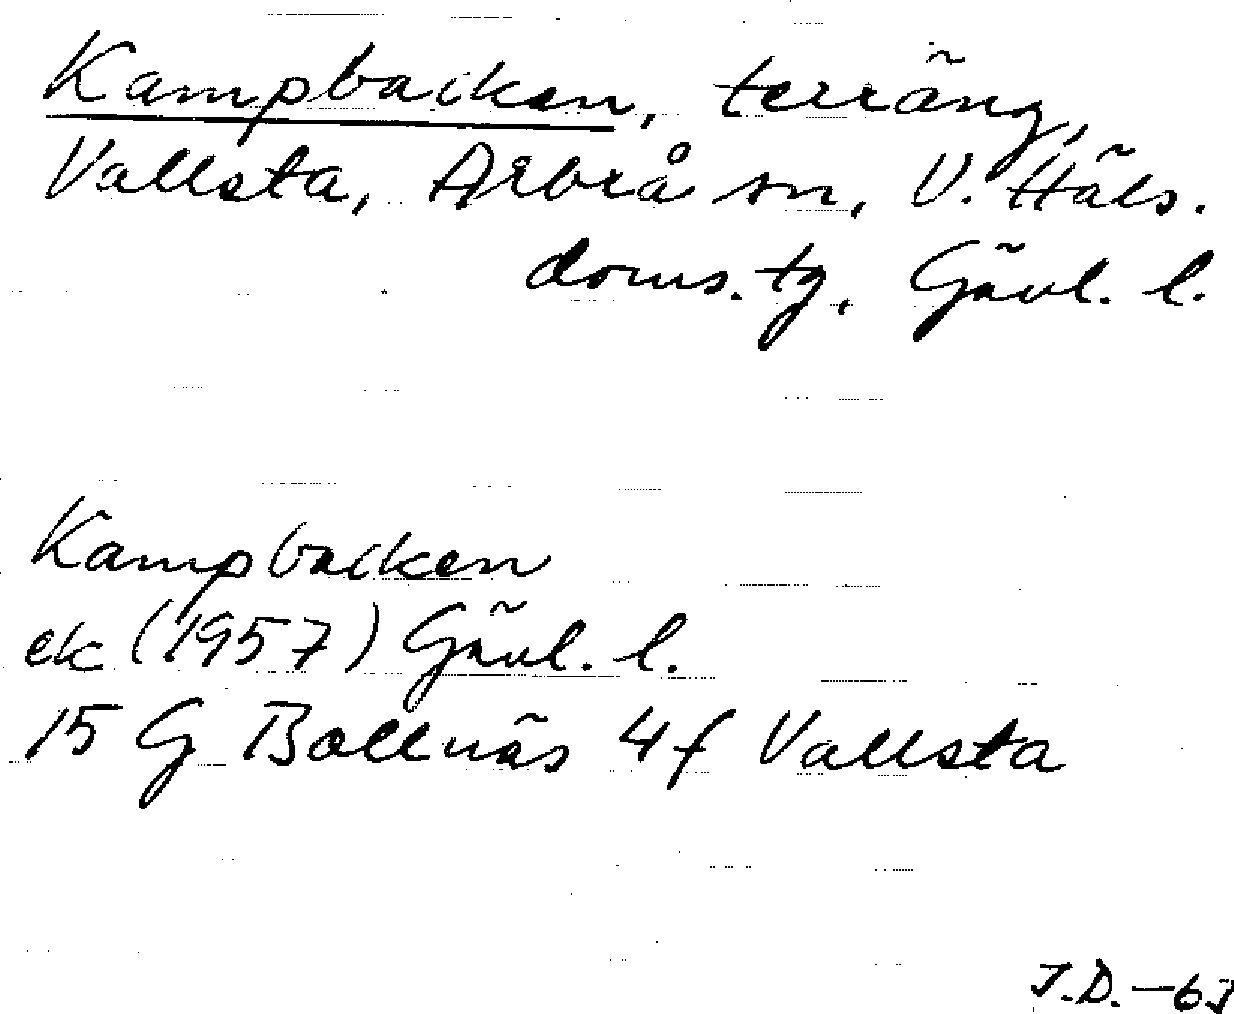 Kampbacken, terräng,
Vallsta, Arbrå sn, V. Häls.
doms. tg, Gävl. l.
Kampbacken
ek (1957) Gävl. l.
15 G Bollnäs 4f Vallsta
J.D. - 63